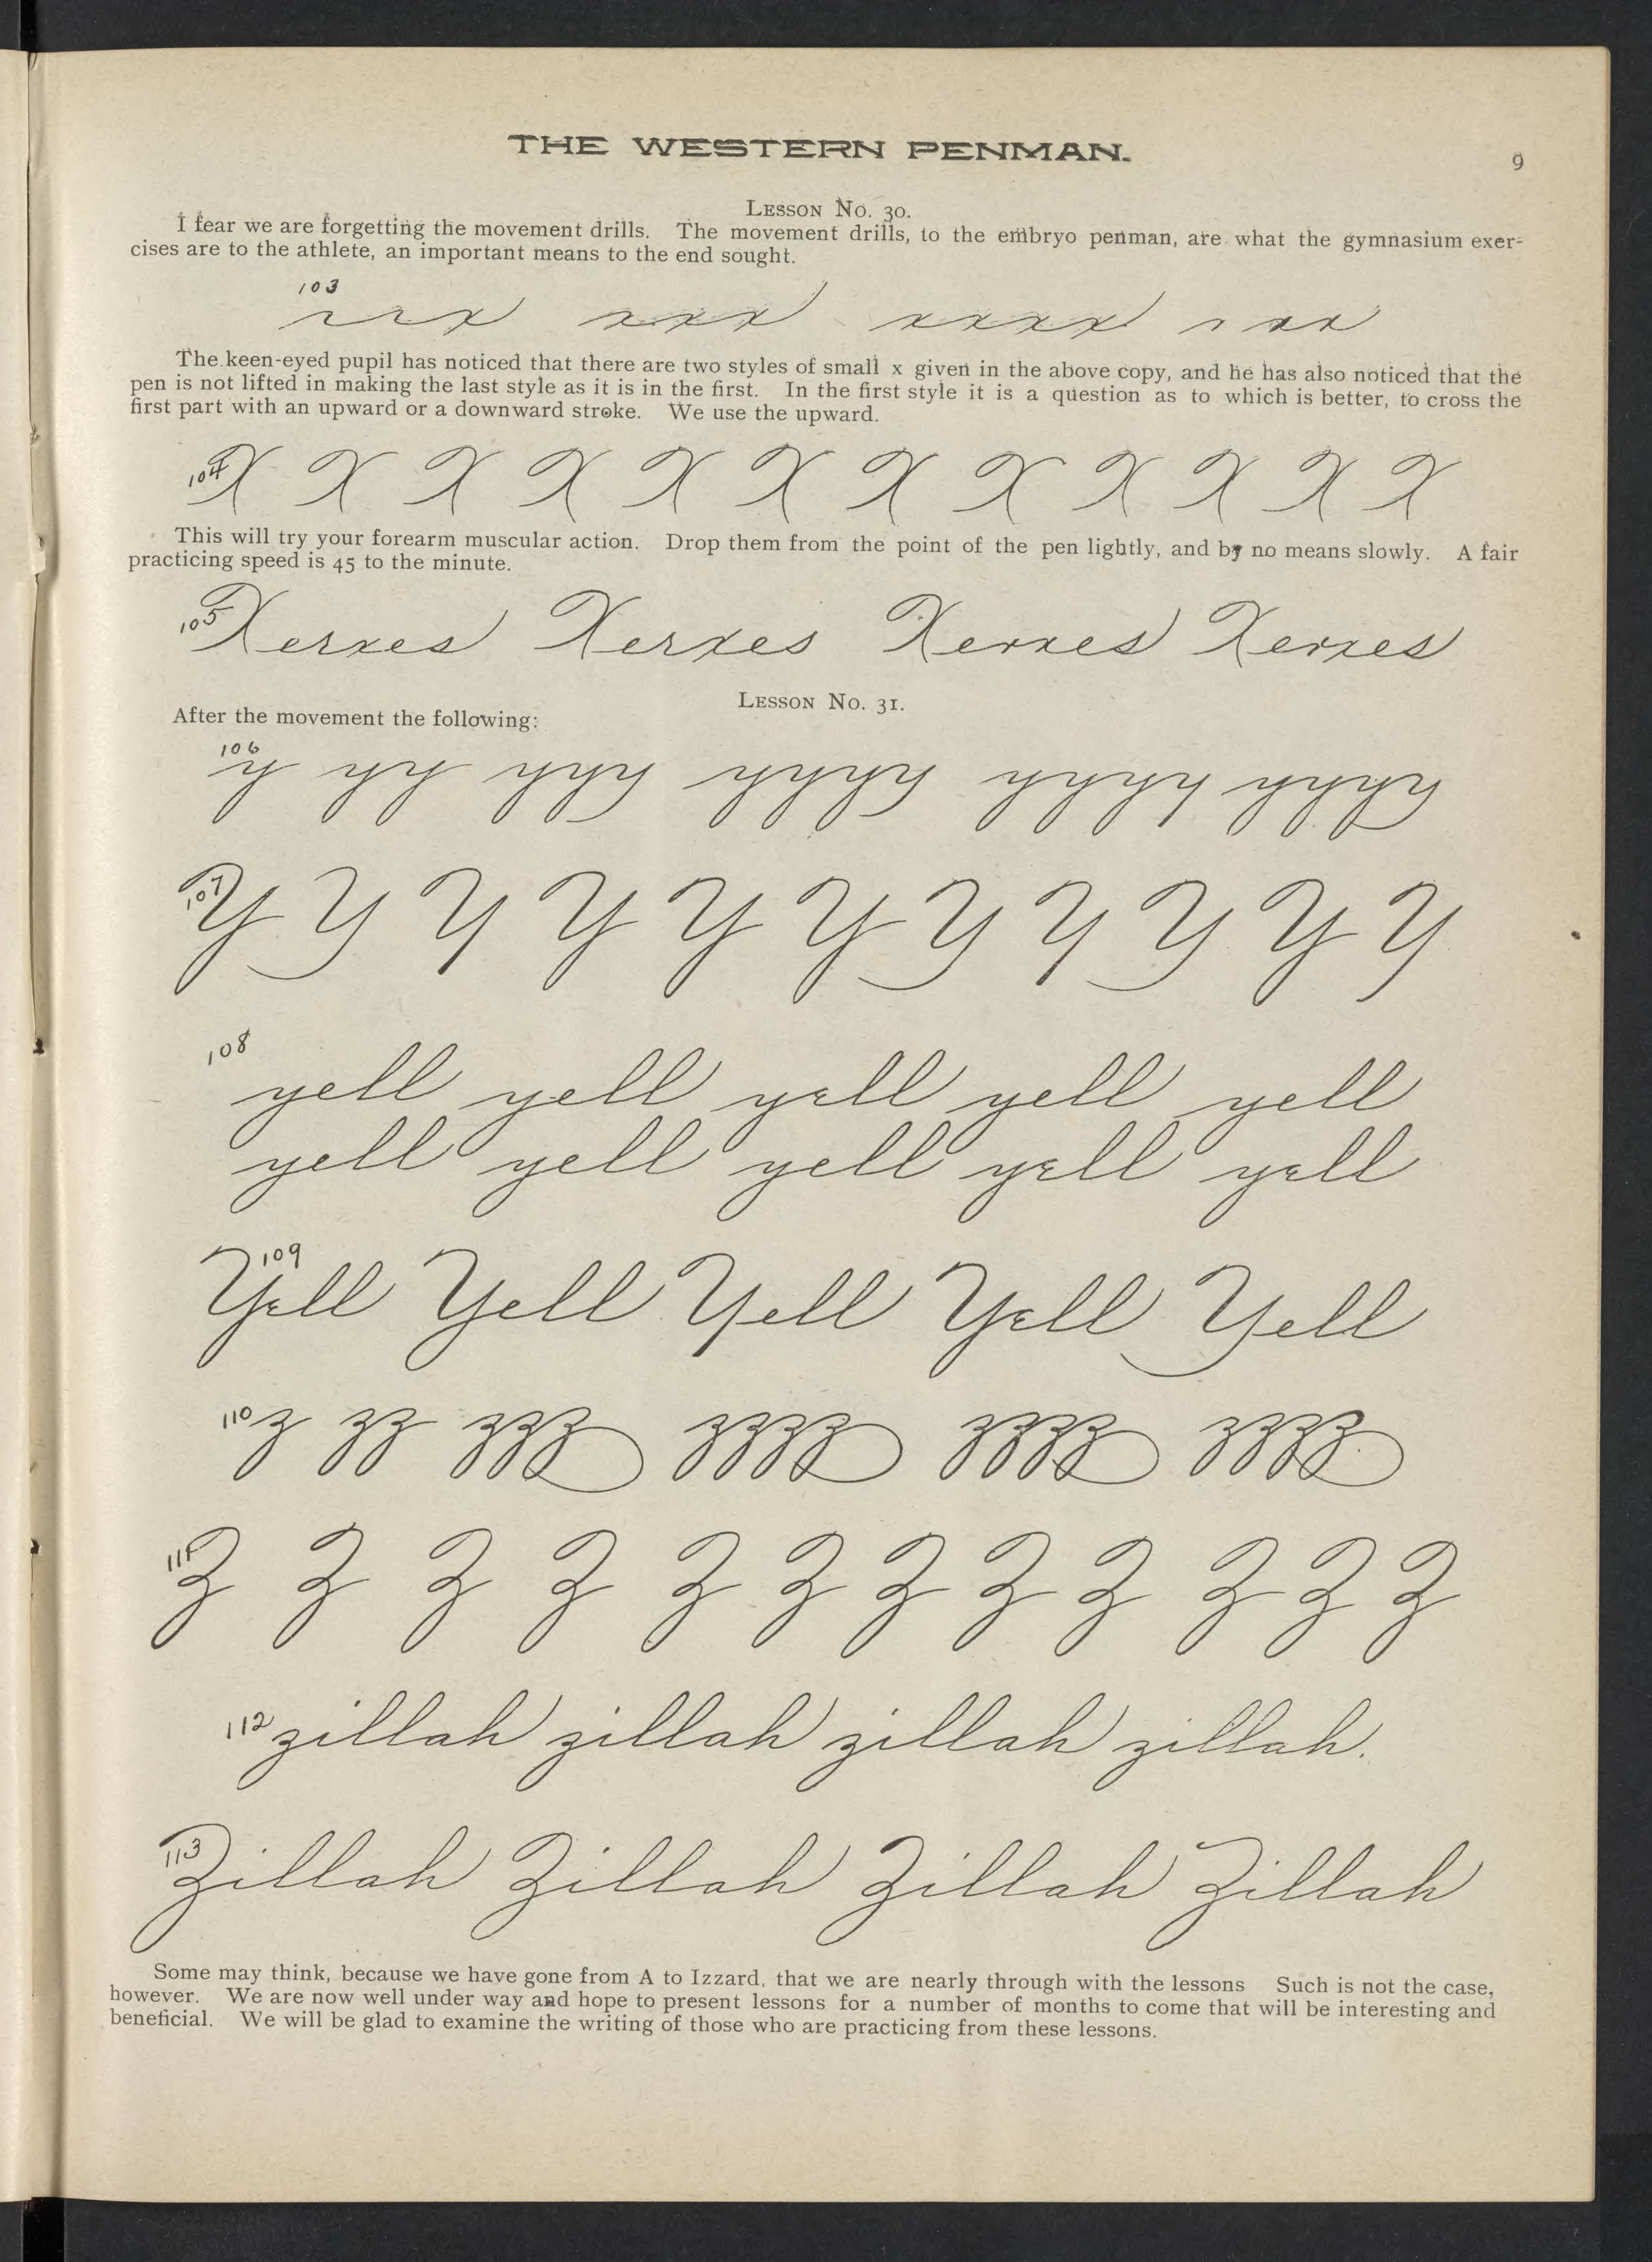 THE WESTERN PENMAN.
9
LESSON NO. 30.
I fear we are forgetting the movement drills. The movement drills, to the embryo penman, are what the gymnasium exer-
cises are to the athlete, an important means to the end sought.
103
x x x x x x x x x x x x x
The keen-eyed pupil has noticed that there are two styles of small x given in the above copy, and he has also noticed that the
pen is not lifted in making the last style as it is in the first. In the first style it is a question as to which is better, to cross the
first part with an upward or a downward stroke. We use the upward.
104 X X X X X X X X X X X X
This will try your forearm muscular action. Drop them from the point of the pen lightly, and by no means slowly. A fair
practicing speed is 45 to the minute.
105 Xerxes Xerxes Xerxes Xerxes
LESSON NO. 31.
After the movement the following:
106
y yy yyy yyyy yyyy yyyy
107 Y Y Y Y Y Y Y Y Y Y Y
108
yell yell yell yell yell
yell yell yell yell yell
109
Yell Yell Yell Yell Yell
110 z zz zzz zzzz zzzz zzzz
111 Z Z Z Z Z Z Z Z Z Z Z Z
112 zillah zillah zillah zillah.
113 Zillah Zillah Zillah Zillah
Some may think, because we have gone from A to Izzard, that we are nearly through with the lessons Such is not the case,
however. We are now well under way and hope to present lessons for a number of months to come that will be interesting and
beneficial. We will be glad to examine the writing of those who are practicing from these lessons.